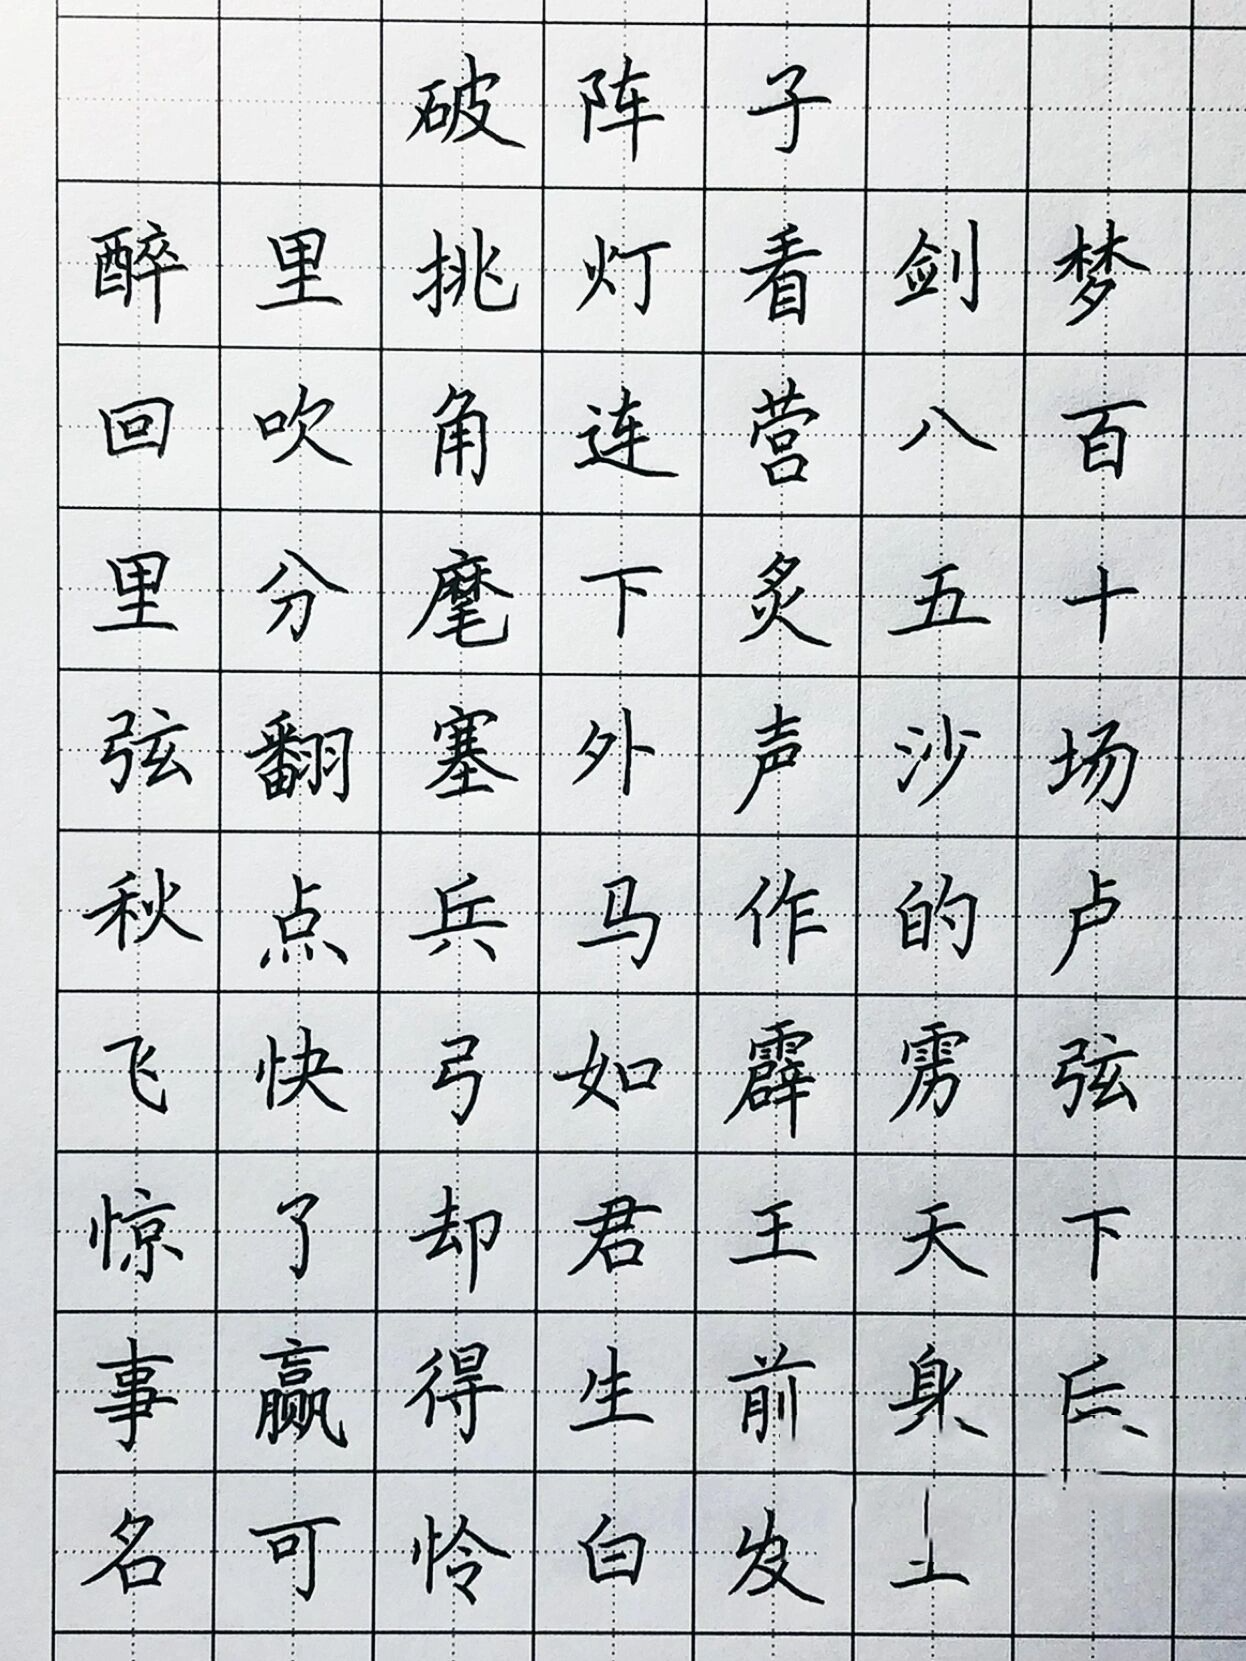 破阵子
醉里挑灯看剑梦
回吹角连营八百
里分麾下炙五十
弦翻塞外声沙场
秋点兵马作的卢
飞快弓如霹雳弦
惊了却君王天下
事赢得生前身
名可怜白发